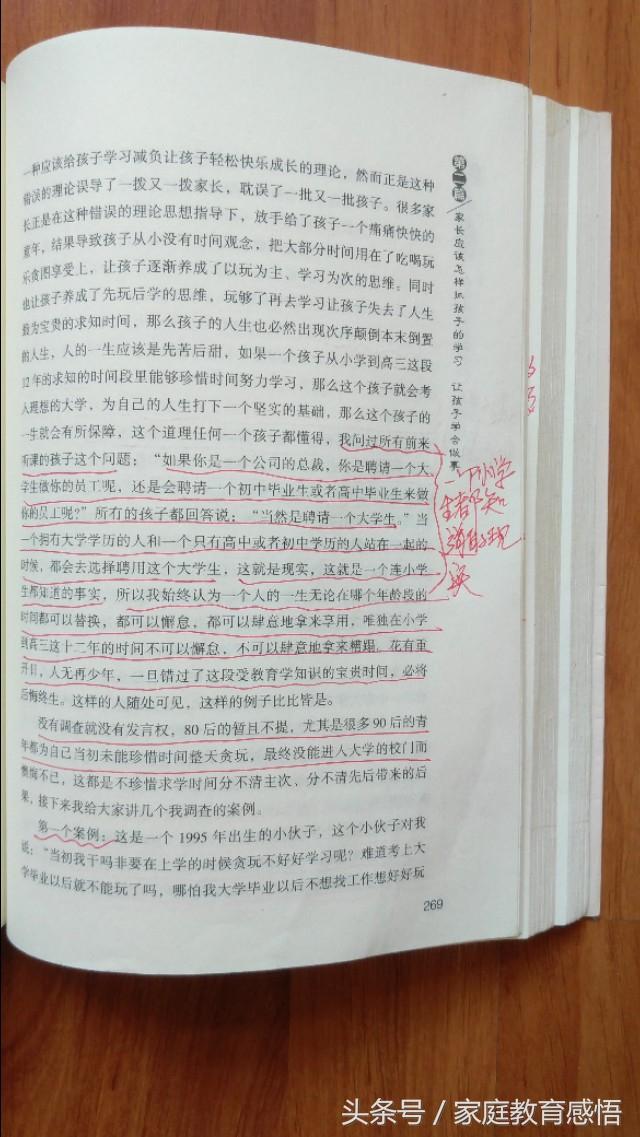 一种应该给孩子学习减负让孩子轻松快乐成长的理论，然而正是这种
错误的理论误导了一拨又一拨家长，耽误了一批又一批孩子。很多家
长正是在这种错误的理论思想指导下，放手给了孩子一个痛痛快快的
童年，结果导致孩子从小没有时间观念，把大部分时间用在了吃喝玩
乐贪图享受上，让孩子逐渐养成了以玩为主、学习为次的思维。同时
也让孩子养成了先玩后学的思维，玩够了再去学习让孩子失去了人生
最为宝贵的求知时间，那么孩子的人生也必然出现次序颠倒本末倒置
的人生，人的一生应该是先苦后甜，如果一个孩子从小学到高三这段
12年的求知的时间段里能够珍惜时间努力学习，那么这个孩子就会考
入理想的大学，为自己的人生打下一个坚实的基础，那么这个孩子的
一生就会有所保障，这个道理任何一个孩子都懂得，我问过所有前来
听课的孩子这个问题：“如果你是一个公司的总裁，你是聘请一个大
学生做你的员工呢，还是会聘请一个初中毕业生或者高中毕业生来做
你的员工呢？”所有的孩子都回答说：“当然是聘请一个大学生。”当
一个拥有大学学历的人和一个只有高中或者初中学历的人站在一起的
时候，都会去选择聘用这个大学生，这就是现实，这就是一个连小学
生都知道的事实，所以我始终认为一个人的一生无论在哪个年龄段的
时间都可以替换，都可以懈怠，都可以肆意地拿来享用，唯独在小学
到高三这十二年的时间不可以懈怠，不可以肆意地拿来糟蹋。花有重
开日，人无再少年，一旦错过了这段受教育学知识的宝贵时间，必将
后悔终生。这样的人随处可见，这样的例子比比皆是。
没有调查就没有发言权，80后的暂且不提，尤其是很多90后的青
年都为自己当初未能珍惜时间整天贪玩，最终没能进入大学的校门而
懊悔不已，这都是不珍惜求学时间分不清主次、分不清先后带来的后
果，接下来我给大家讲几个我调查的案例。
第一个案例：这是一个1995年出生的小伙子，这个小伙子对我
说：“当初我干吗非要在上学的时候贪玩不好好学习呢？难道考上大
学毕业以后就不能玩了吗，哪怕我大学毕业以后不想找工作想好好玩
269
第二篇/家长应该怎样抓孩子的学习 让孩子学会做事
小学
生都知
头条号／家庭教育感悟